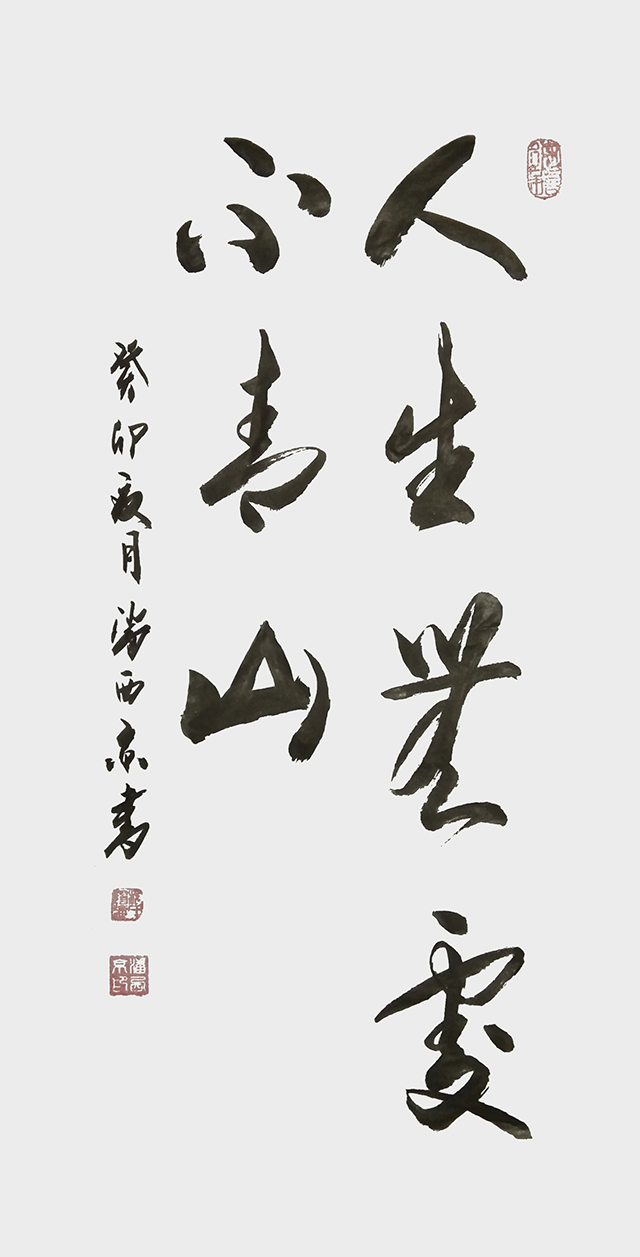 人生無處
不青山
癸卯夏月潘西京書
潘西京印